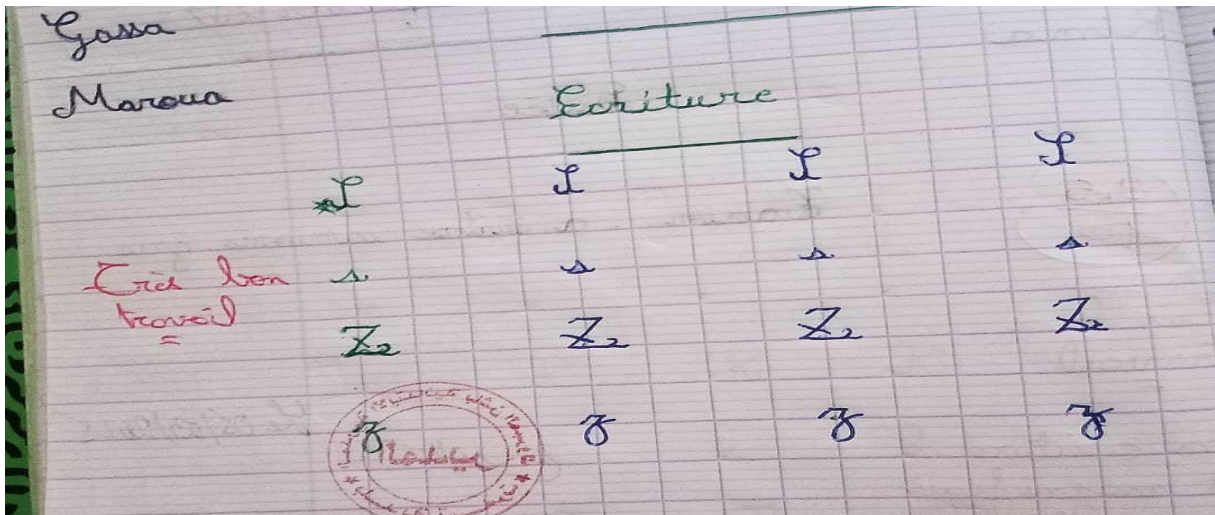 Gassa
Maroua
Ecriture
S S S S
s s s s
Très bon
travail
Z Z Z Z
z z z z